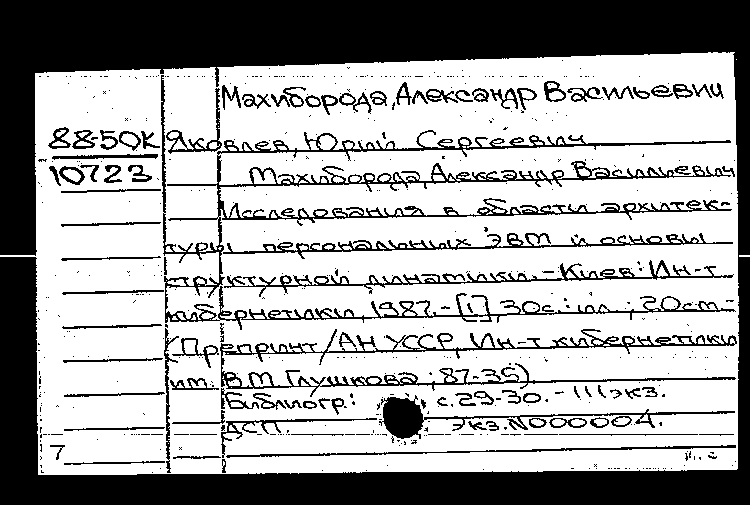 Махиборода, Александр Васильевич
88-50К Яковлев, Юрий Сергеевич,
10723 Махиборода, Александр Васильевич
Исследования в области архитек-
туры персональных ЭВМ и основы
структурной динамики. - Киев: Ин-т
кибернетики, 1987. - [1], 30с.: ил.; 20см -
(Препринт / АН УССР, Ин-т кибернетики
им. В.М. Глушкова; 87-35)
Библиогр.: с. 29-30. - 111 экз.
ДСП. Экз. N000004.
7